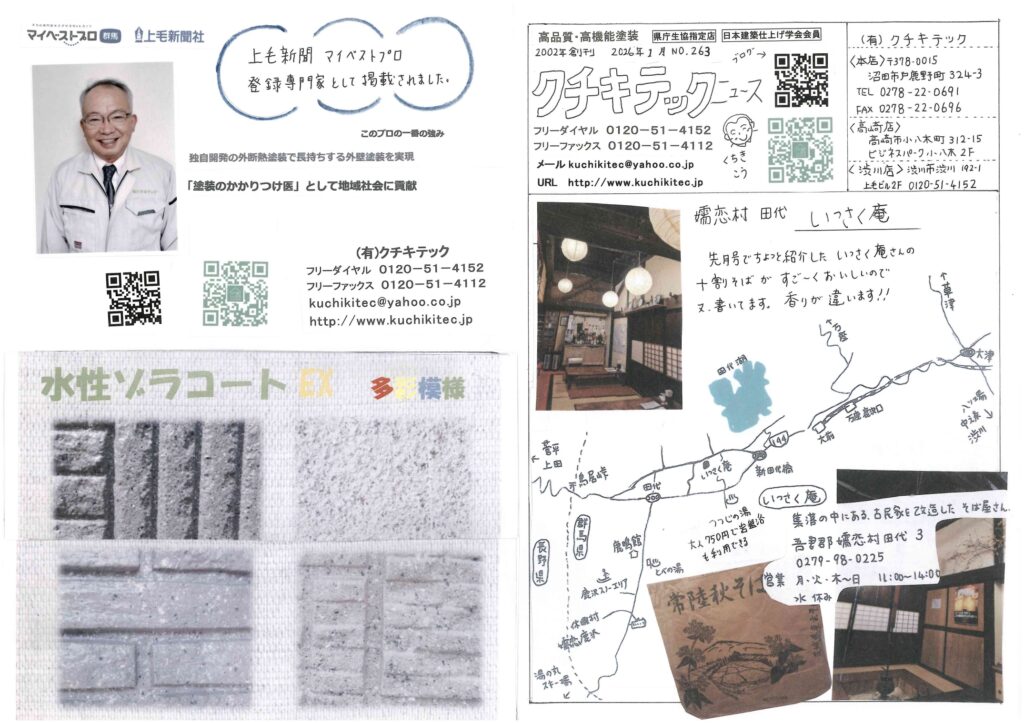 マイベストプロ 群馬
上毛新聞社
上毛新聞 マイベストプロ
登録専門家として掲載されました。
このプロの一番の強み
独自開発の外断熱塗装で長持ちする外壁塗装を実現
「塗装のかかりつけ医」として地域社会に貢献
(有)クチキテック
フリーダイヤル 0120-51-4152
フリーファックス 0120-51-4112
kuchikitec@yahoo.co.jp
http://www.kuchikitec.jp
水性ゾラコート EX 多彩模様
高品質・高機能塗装 県庁生協指定店 日本建築仕上げ学会会員
2002年創刊 2026年1月 NO.263
ブログ→
クチキテックニュース
フリーダイヤル 0120-51-4152
フリーファックス 0120-51-4112
メール kuchikitec@yahoo.co.jp
URL http://www.kuchikitec.jp
くちき
こう
(有) クチキテック
〈本店〉〒378-0015
沼田市戸鹿野町324-3
TEL 0278-22-0691
FAX 0278-22-0696
〈高崎店〉
高崎市小八木町312-15
ビジネスパーク小八木2F
〈渋川店〉渋川市渋川192-1
上毛ビル2F 0120-51-4152
嬬恋村 田代 いっさく庵
先月号でちょっと紹介した いっさく庵さんの
十割そばが すご〜くおいしいので
又、書いてます。香りが違います!!
草津
万座
大津
田代湖
八ッ場
中之条
渋川
万座鹿沢口
大前
144
菅平
上田
鳥居峠
田代
いっさく庵
新田代橋
つつじの湯
大人750円で岩盤浴
も利用できる
群馬県
長野県
鹿鳴館
とべの湯
鹿沢スノーエリア
休暇村
嬬恋鹿沢
湯の丸
スキー場
いっさく庵
集落の中にある、古民家を改造した そば屋さん
吾妻郡嬬恋村田代 3
0279-98-0225
営業 月・火・木〜日 11:00〜14:00
水 休み
常陸秋そば